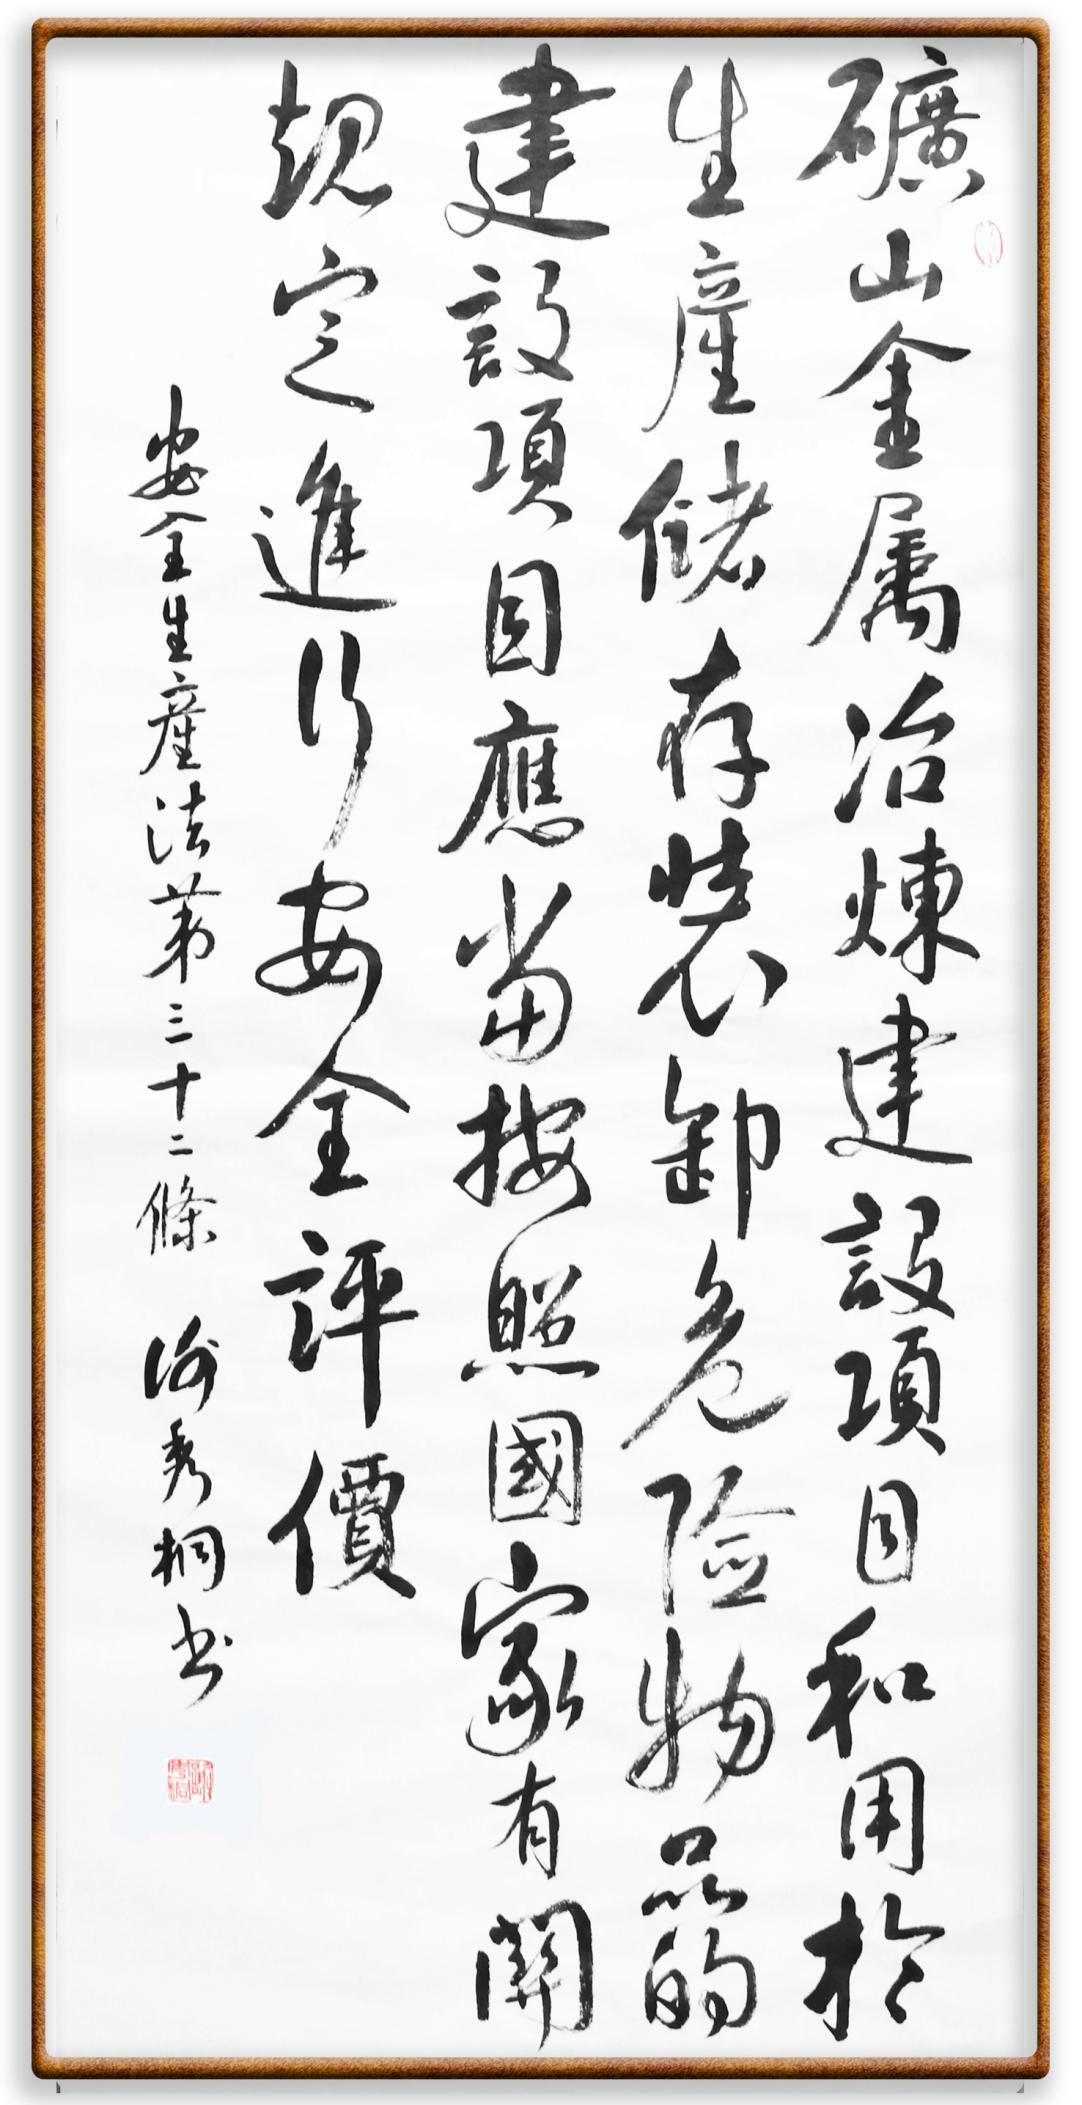 礦山金属冶煉建設項目和用於
生産儲存裝卸危险物品的
建設項目應當按照國家有関
規定進行安全評價
安全生産法第三十二條 谢秀桐书